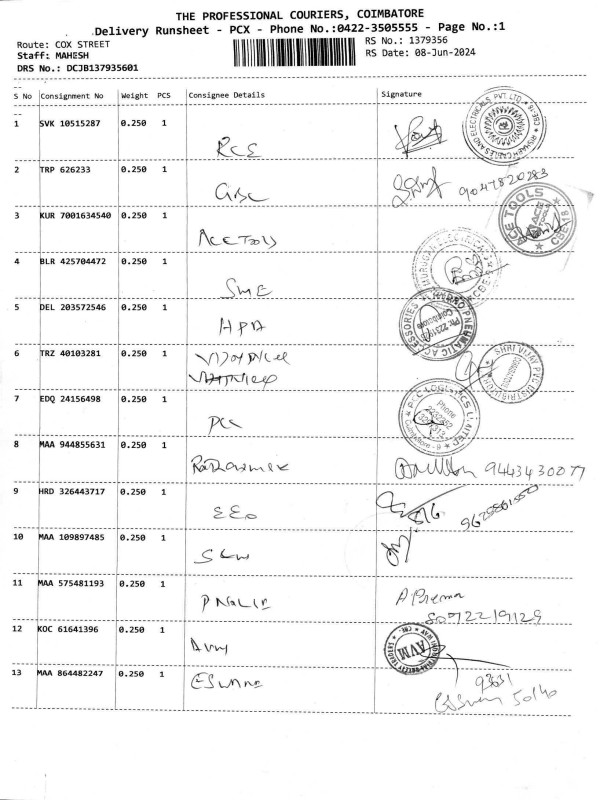 THE PROFESSIONAL COURIERS, COIMBATORE
Delivery Runsheet - PCX - Phone No.:0422-3505555 - Page No.:1
Route: COX STREET
RS No.: 1379356
Staff: MAHESH
RS Date: 08-Jun-2024
DRS No.: DCJB137935601
S No Consignment No Weight PCS Consignee Details Signature
1 SVK 10515287 0.250 1
RCE
2 TRP 626233 0.250 1
9047820283
3 KUR 7001634540 0.250 1
ACE TOOLS
ACE TOOLS
CBE-18
4 BLR 425704472 0.250 1
SME
5 DEL 203572546 0.250 1
HPA
6 TRZ 40103281 0.250 1
SHRI VIJAY PVC DISTRIBUTOR
7 EDQ 24156498 0.250 1
PCC
PCC LOGISTICS LIMITED
Phone
8 MAA 944855631 0.250 1
9443430077
9 HRD 326443717 0.250 1
EEO
10 MAA 109897485 0.250 1
11 MAA 575481193 0.250 1
A Prema
12 KOC 61641396 0.250 1
AVM
AVM
13 MAA 864482247 0.250 1
93631
50140